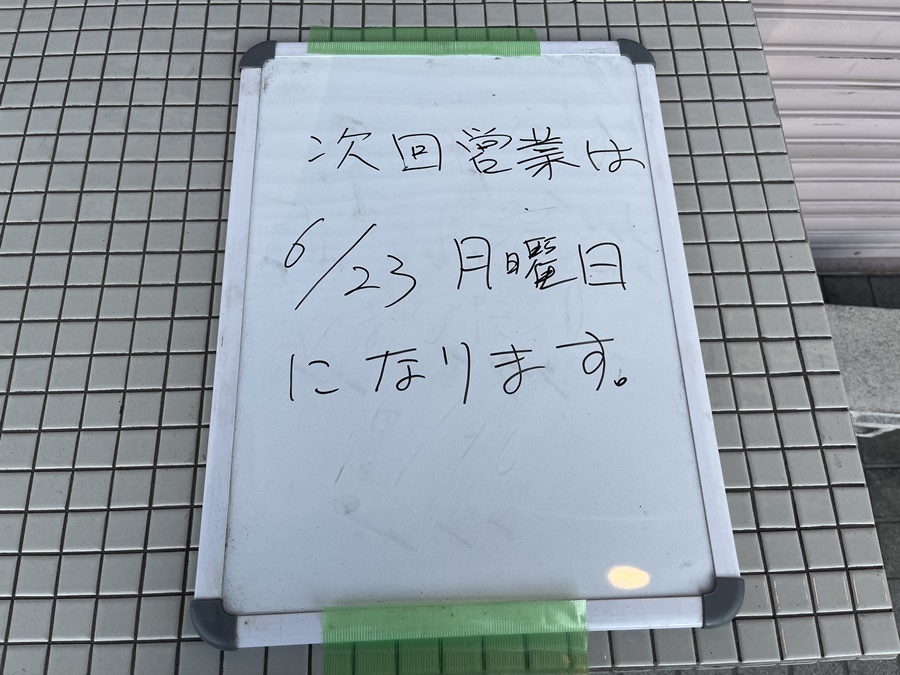 次回営業は
6/23 月曜日
になります。